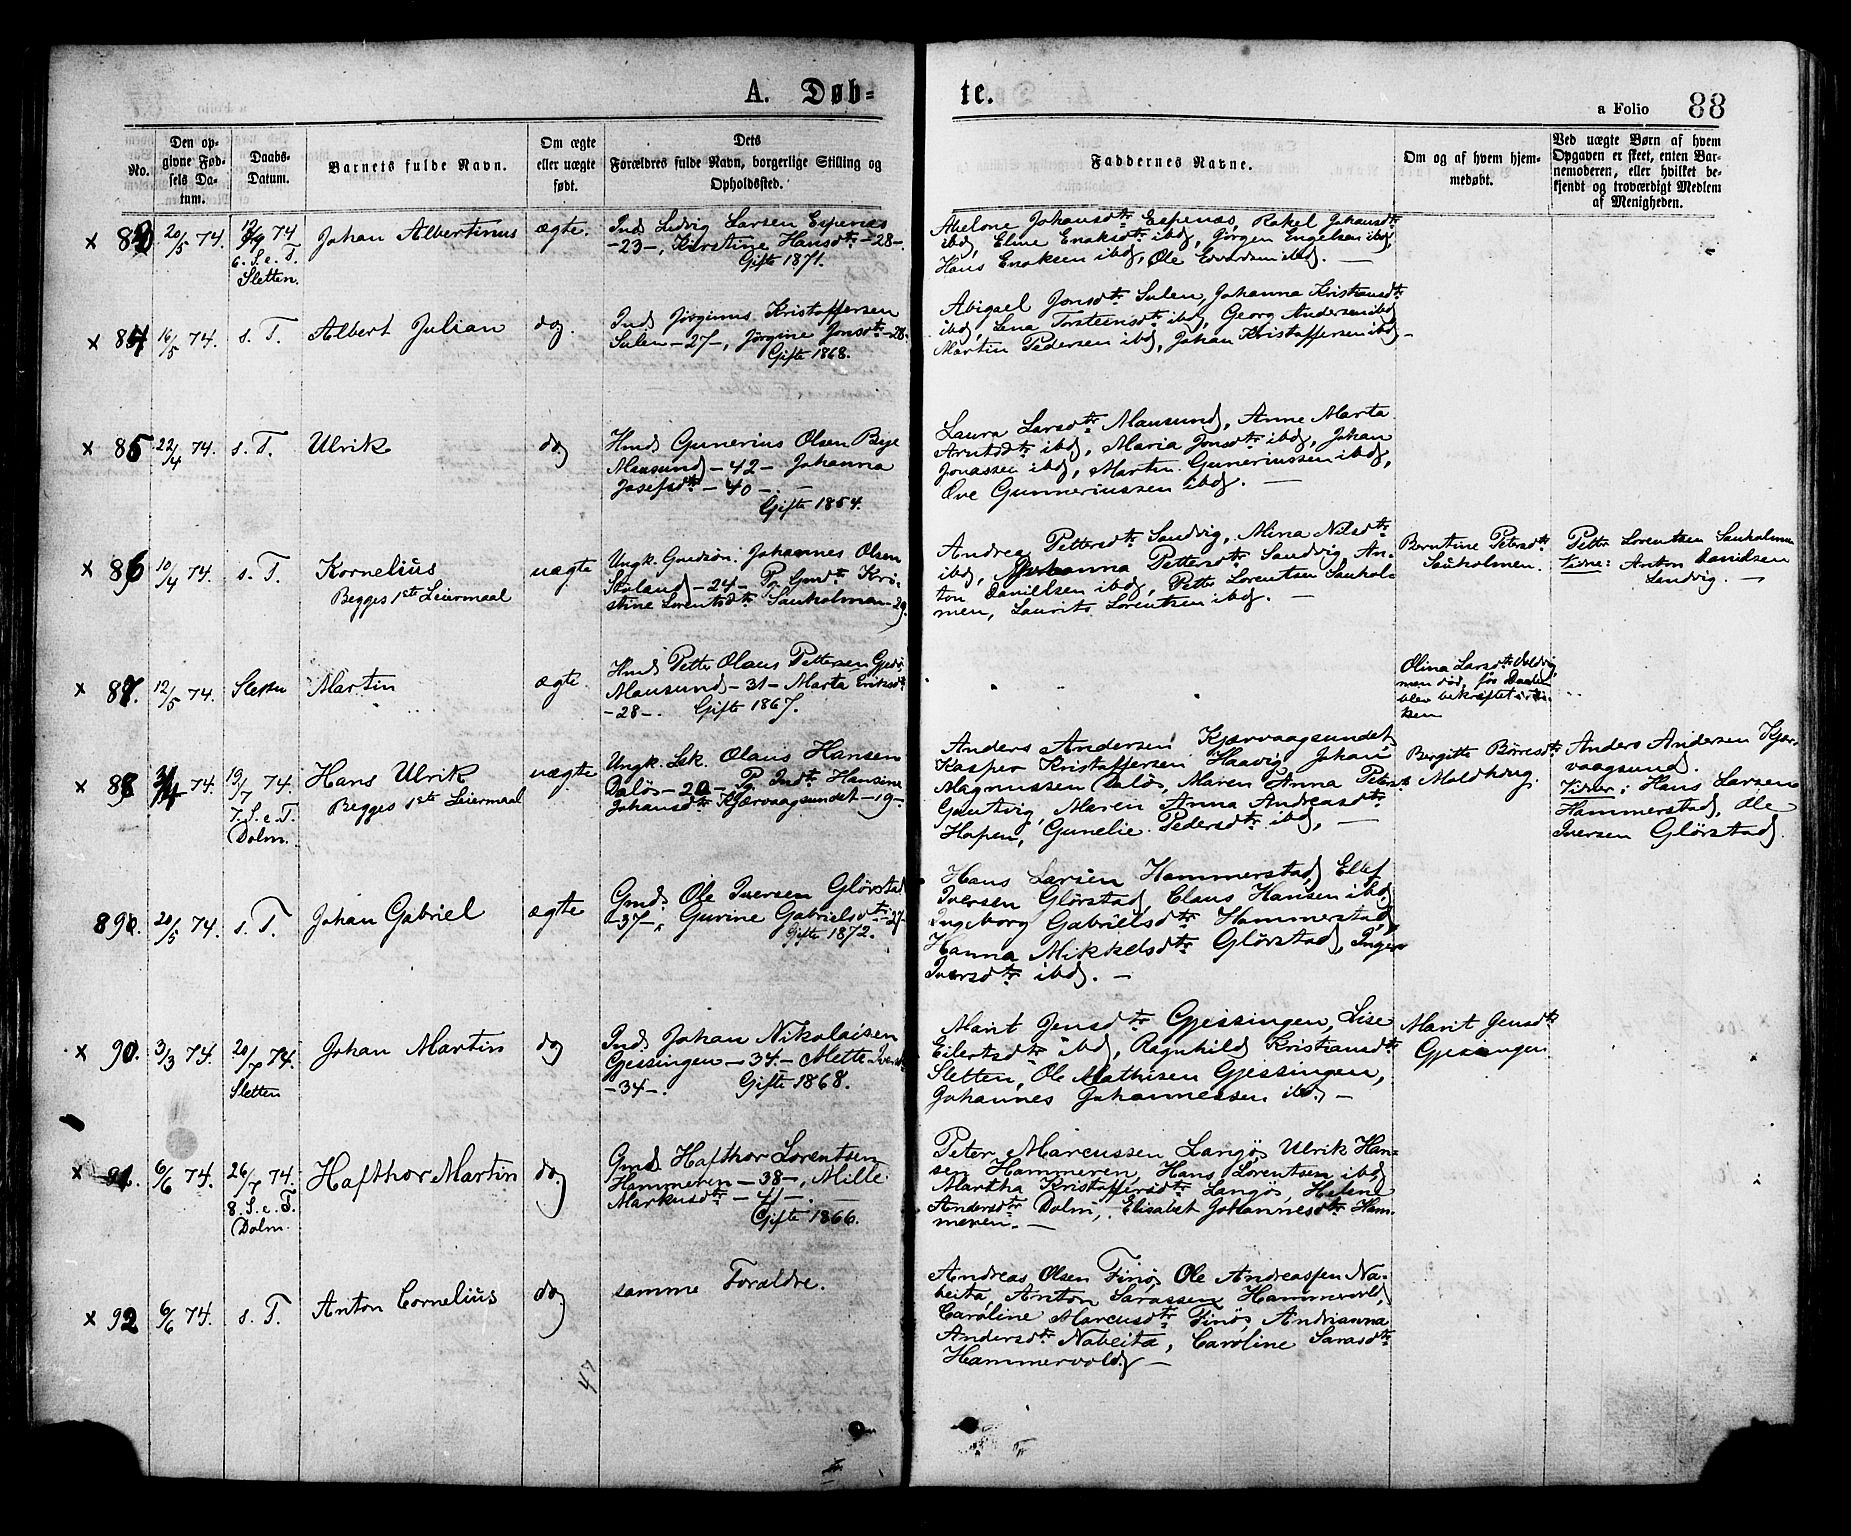 A. Døb-
te.
a Folio 88
No.
Den op-
givne Fød-
sels Da-
tum.
Daabs-
Datum.
Barnets fulde Navn.
Om ægte
eller uægte
født.
Dets
Forældres fulde Navn, borgerlige Stilling og
Opholdssted.
Faddernes Navne.
Om og af hvem hjem-
medøbt.
Ved uægte Børn af hvem
Opgaven er skeet, enten Bar-
nemoderen, eller hvilket be-
kjendt og troværdigt Medlem
af Menigheden.
x 83 20/5 74. 74
6. S. e. T.
Sletten.
Johan Albertinus
ægte.
Inds Ludvig Larsen Espenæs
-23-, Kirstine Hansdtr -28-.
Gifte 1871.
Abelone Johansdtr Espenæs, Rakel Johansdtr
ibd, Eline Enoksdtr ibd, Jørgen Engelsen ibd,
Hans Enoksen ibd, Ole Edvardsen ibd. —
x 84 16/5 74. s. T.
Albert Julian
do.
Inds Jørginus Kristoffersen
Sulen -27-, Jørgine Jonsdtr -28.
Gifte 1868.
Abigael Jonsdtr Sulen, Johanna Kristiansdtr
ibd, Lena Torsteinsdtr ibd, Georg Andersen ibd,
Martin Pedersen ibd, Johan Kristoffersen ibd —
x 85 22/4 74. s. T.
Ulrik
do
Hmd Gunerius Olsen Bye
Mausund -42- Johanna
Josefsdtr -40-. —
Gifte 1854.
Laura Larsdtr Mausund, Anne Marta
Arntsdtr ibd, Maria Jonsdtr ibd, Johan
Jonassen ibd, Martin Guneriussen ibd,
Ove Gunneriussen ibd. —
x 86 10/4 74. s. T.
Kornelius
Begges 1ste Leiermaal
uægte
Ungk. Gmdsøn. Johannes Olsen
Skoland -24- Pg. Gmdt. Kri-
stine Lorentsdtr Sauholman -29.
Andrea Pettersdtr Sandvig, Mina Nilsdtr
ibd, Johanna Pettersdtr Sandvig, An-
ton Danielsen ibd, Petter Lorentsen Sauhol-
men, Laurits Lorentsen ibd. —
Berntine Petersdtr
Sauholmen.
Petter Lorentsen Sauholmen
Vidne: Anton Danielsen
Sandvig. —
x 87. 12/5 74. Sletten
Martin
ægte.
Hmd Petter Olaus Pettersen
Mausund -31- Marta Eriksdtr
-28-. Gifte 1867.
Olina Larsdtr
men død, før Daaben
blev bekræftet i Kir-
ken
x 88 74 19/7 74.
7. S. e. T.
Dolm.
Hans Ulrik
Begges 1ste Leiermaal
uægte.
Ungk. Olaus Hansen
Daløs -20- Pg. Indt. Hansine
Johansdtr Kjærvaagsundet -19-
Anders Andersen Kjærvaagsundet
Kasper Kristoffersen Haavig, Johan
Magnussen Daløs, Maren Anna Petersdtr
Gautvig, Maren Anna Andreasdtr
Hopen, Gunelie Pedersdtr ibd, —
Bergitte Børresdtr
Moldhoug.
Anders Andersen Kjær-
vaagsund.
Vidner: Hans Larsen
Hammerstad, Ole
Iversen Glørstad.
89. 20/5 74. s. T.
Johan Gabriel
ægte
Gmd. Ole Iversen Glørstad
-37-, Gurine Gabrielsdtr -27-
Gifte 1872.
Hans Larsen Hammerstad, Ellef
Iversen Glørstad, Claus Hansen ibd,
Ingeborg Gabrielsdtr Hammerstad,
Hanna Mikkelsdtr Glørstad, Inger
Iversdtr ibd. —
x 90. 3/3 74. 20/7 74.
Sletten
Johan Martin
do
Inds Johan Nikolaisen
Gjessingen -34- Mette Iversdtr
-34-. Gifte 1868.
Marit Jensdtr Gjessingen, Lise
Eilertsdtr ibd, Ragnhild Kristiansdtr
Sletten, Ole Mathisen Gjessingen,
Johannes Johannessen ibd —
Marit Jensdtr
Gjessingen
x 91. 6/6 74. 26/7 74.
8. S. e. T.
Dolm.
Hafthor Martin
do.
Gmd Hafthor Lorentsen
Hammeren -38-, Mille
Markusdtr -41-.
Gifte 1866.
Peter Marcussen Langø, Ulrik Han-
sen Hammeren, Hans Lorentsen ibd,
Martha Kristoffersdtr Langø, Helene
Andersdtr Dolm, Elisabet Johannesdtr Ham-
meren. —
x 92 6/6 74. s. T.
Anton Cornelius
do
samme Forældre.
Andreas Olsen Finø, Ole Andreassen Na-
beita, Anton Sarassen Hammervold,
Caroline Marcusdtr Finø, Andrianna
Andersdtr Nabeita, Caroline Sarasdtr
Hammervold. —
47